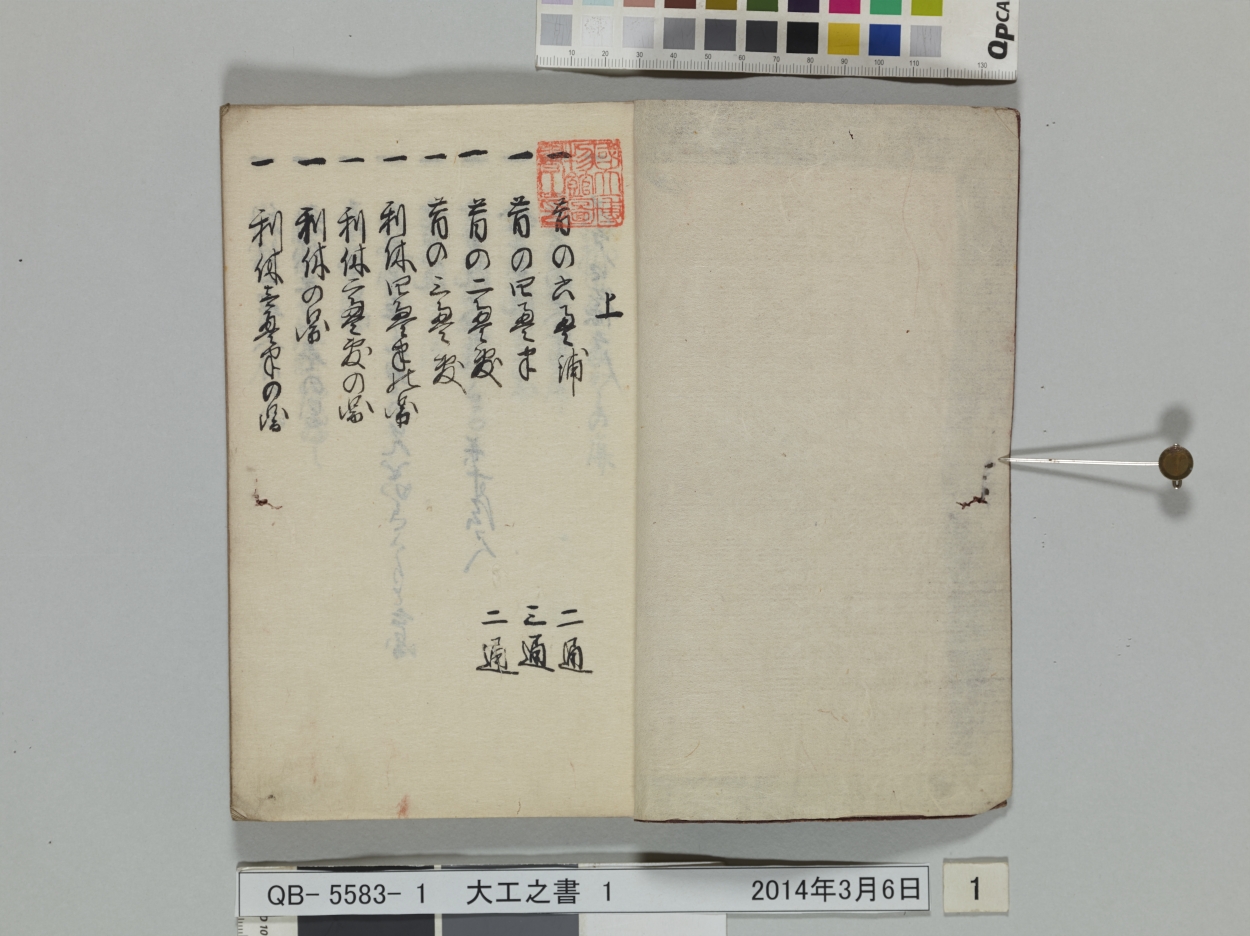 QPCA
10 20 30 40 50 60 70 80 90 100 110 130
上
一 昔の六畳 二通
一 昔の四畳半 三通
一 昔の二畳敷 二通
一 昔の三畳敷
一 利休四畳半の図
一 利休二畳敷の図
一 利休の図
一 利休三畳半の図
QB- 5583- 1 大工之書 1 2014年3月6日
1